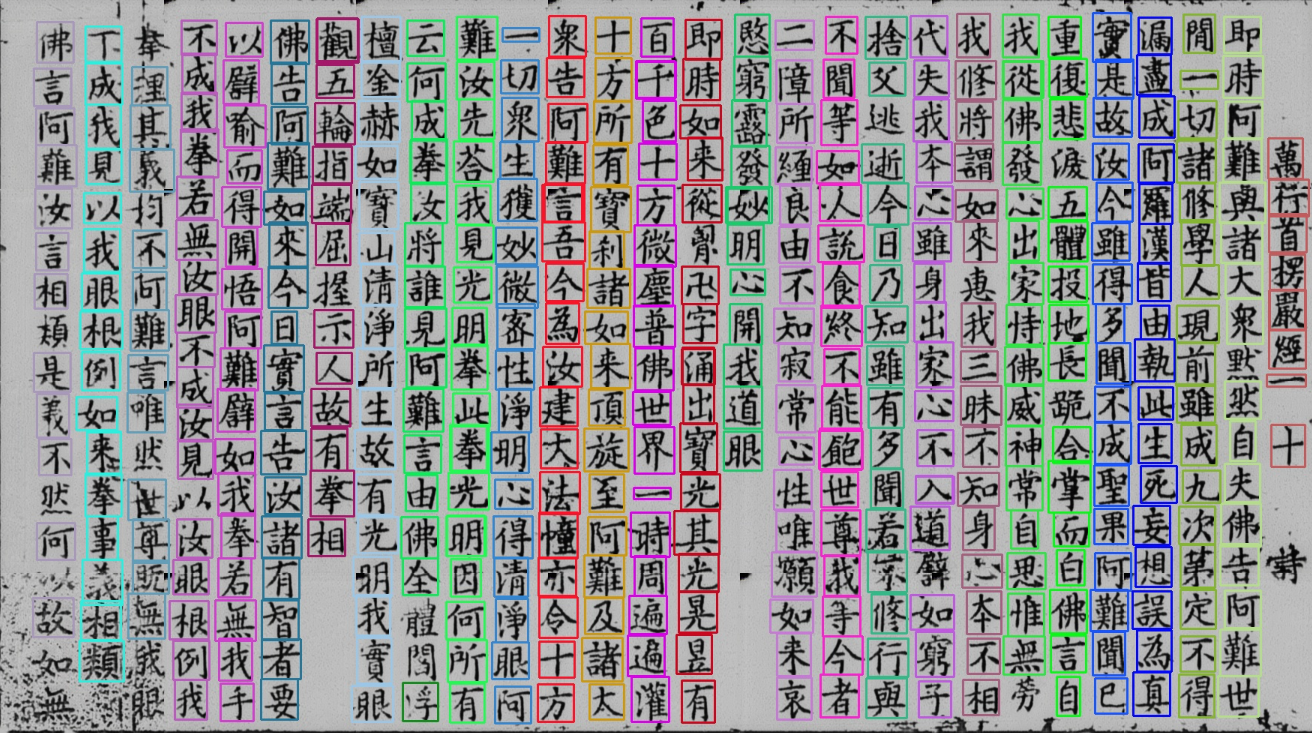 萬行首楞嚴經一 十
即時阿難與諸大衆默然自失佛告阿難世
間一切諸修學人現前雖成九次第定不得
漏盡成阿羅漢皆由執此生死妄想誤為真
實是故汝今雖得多聞不成聖果阿難聞已
重復悲淚五體投地長跪合掌而白佛言自
我從佛發心出家恃佛威神常自思惟無勞
我修將謂如來惠我三昧不知身心本不相
代失我本心雖身出家心不入道譬如窮子
捨父逃逝今日乃知雖有多聞若不修行與
不聞等如人說食終不能飽世尊我等今者
二障所纏良由不知寂常心性唯願如來哀
愍窮露發妙明心開我道眼
即時如來從胷卍字涌出寶光其光晃昱有
百千色十方微塵普佛世界一時周遍遍灌
十方所有寶刹諸如來頂旋至阿難及諸太
衆告阿難言吾今為汝建大法幢亦令十方
一切衆生獲妙微密性淨明心得清淨眼阿
難汝先荅我見光明拳此拳光明因何所有
云何成拳汝將誰見阿難言由佛全體閻浮
檀金赫如寶山清淨所生故有光明我實眼
觀五輪指端屈握示人故有拳相
佛告阿難如來今日實言告汝諸有智者要
以譬喻而得開悟阿難譬如我拳若無我手
不成我拳若無汝眼不成汝見以汝眼根例我
拳理其義均不阿難言唯然世尊既無我眼
不成我見以我眼根例如來拳事義相類
佛言阿難汝言相類是義不然何以故如無